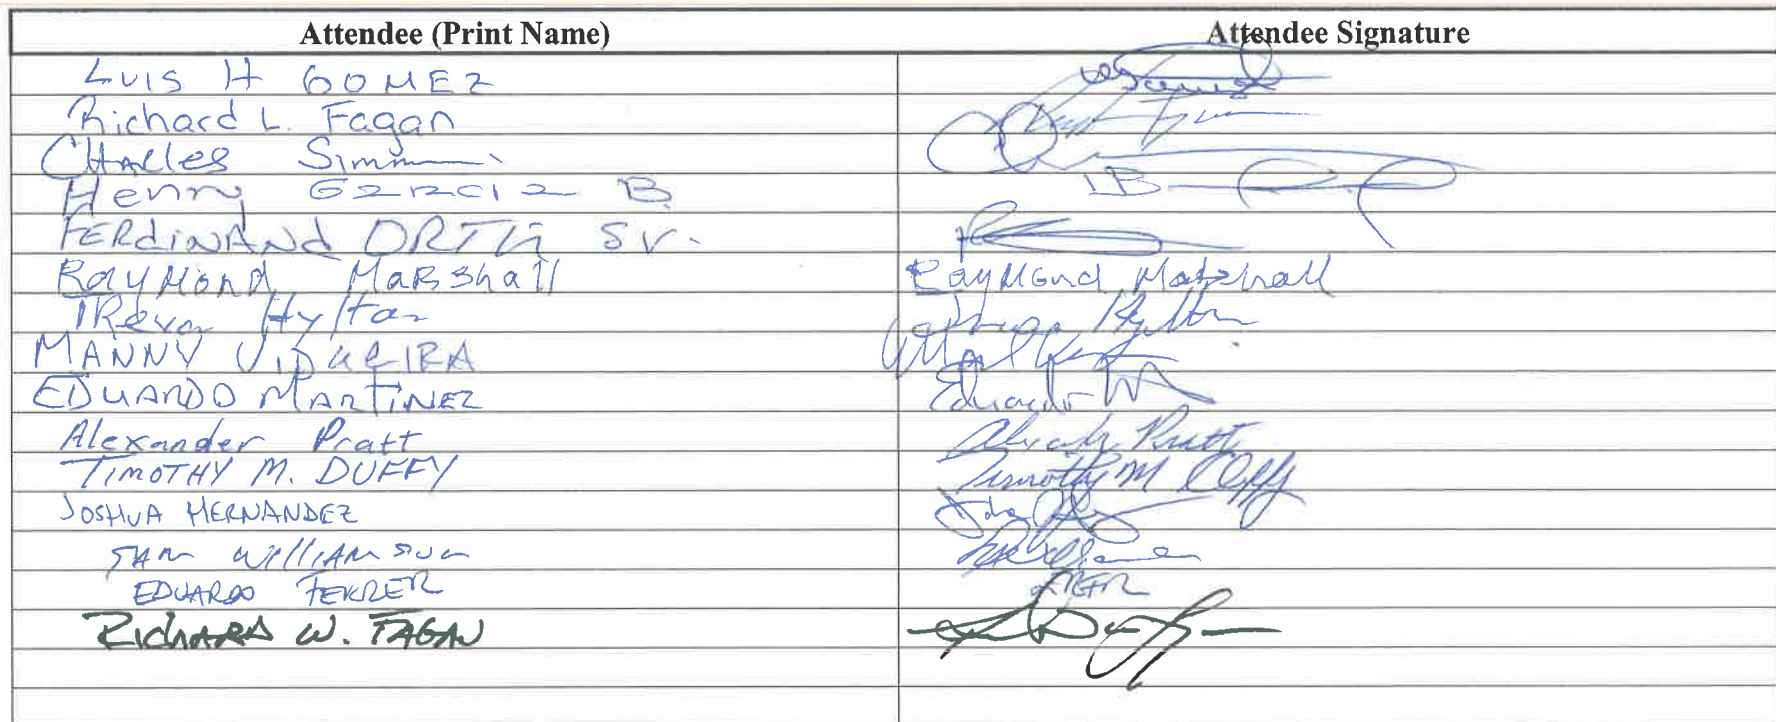 Attendee (Print Name) Attendee Signature
LUIS H GOMEZ
Richard L. Fagan
CHARLES Simm
Henry Garcia B.
FERdiNANd ORTIz Sr.
RayMond MaRshall RayMond Marshall
TRevor Hylton Hylton
MANNY VIDUEIRA
EDUARDO MARTINEZ Eduardo M
Alexander Pratt Pratt
TIMOTHY M. DUFFY Timothy M Duffy
JOSHUA HERNANDEZ
SAM WILLIAMSON
EDUARDO FERRER
RICHARD W. FAGAN